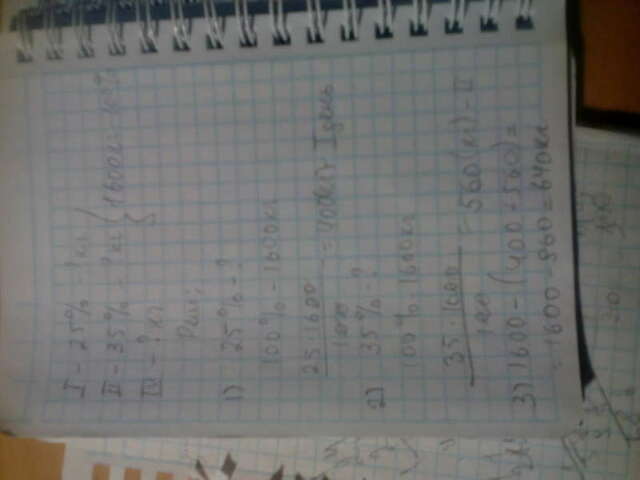 I - 25% - ? кг
II - 35% - ? кг } 1600кг
IV - ? кг
Реш;
1) 25% - ?
100% - 1600кг
25·1600
100
= 400кг - I день
2) 35% - ?
100% - 1600кг
35·1600
100
= 560(кг) - II
3) 1600 - (400+560) =
= 1600 - 960 = 640кг